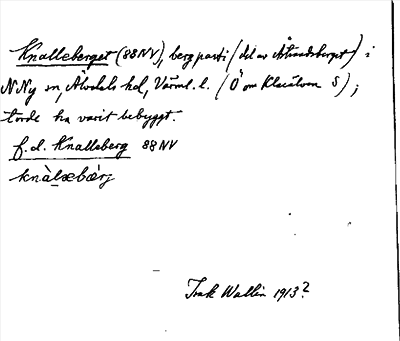 Knalleberget (88NV), bergparti (del av Åstrandsberget) i
N Ny sn, Älvdals hd, Värml. l. (Ö om Klarälven S);
torde ha varit bebyggt.
f.d. Knalleberg 88 NV
knàlsebǽrj
Isak Wallin 1913?